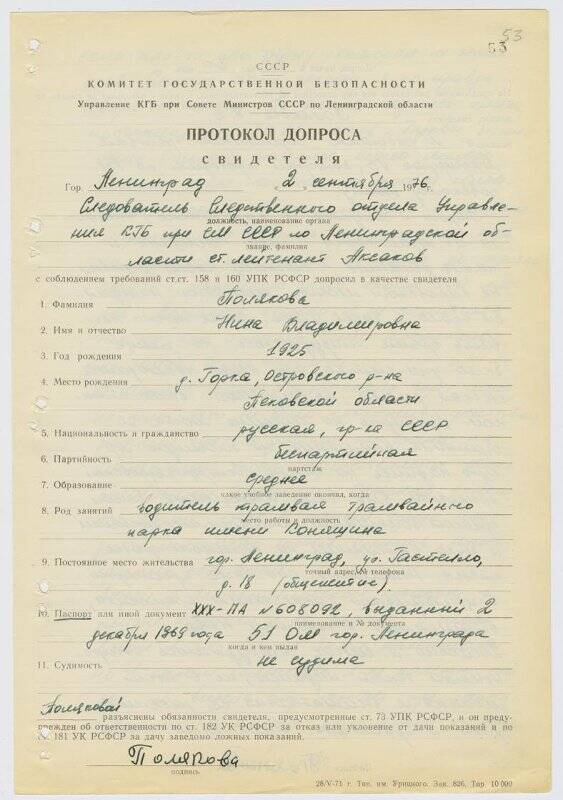 53
53
СССР
КОМИТЕТ ГОСУДАРСТВЕННОЙ БЕЗОПАСНОСТИ
Управление КГБ при Совете Министров СССР по Ленинградской области
ПРОТОКОЛ ДОПРОСА
свидетеля
Гор. Ленинград „2„ сентября 1976 г.
Следователь Следственного отдела Управле-
должность, наименование органа
ния КГБ при СМ СССР по Ленинградской об-
звание, фамилия
ласти ст. лейтенант Аксаков
с соблюдением требований ст.ст. 158 и 160 УПК РСФСР допросил в качестве свидетеля
1. Фамилия Полякова
2. Имя и отчество Нина Владимировна
3. Год рождения 1925
4. Место рождения д. Горка, Островского р-на
Псковской области
5. Национальность и гражданство русская, гр-ка СССР
6. Партийность беспартийная
партстаж
7. Образование среднее
какое учебное заведение окончил, когда
8. Род занятий водитель трамвая трамвайного
место работы и должность
парка имени Коняшина
9. Постоянное место жительства гор. Ленинград, ул. Гастелло,
точный адрес, № телефона
д. 18 (общежитие)
10. Паспорт или иной документ XXX-ПА №608092, выданный 2
наименование и № документа
декабря 1969 года 51 ОМ гор. Ленинграда
когда и кем выдан
11. Судимость не судима
Поляковой
разъяснены обязанности свидетеля, предусмотренные ст. 73 УПК РСФСР, и он преду-
прежден об ответственности по ст. 182 УК РСФСР за отказ или уклонение от дачи показаний и по
ст. 181 УК РСФСР за дачу заведомо ложных показаний.
Полякова
подпись
28/V-71 г. Тип. им. Урицкого. Зак. 826. Тир. 10 000